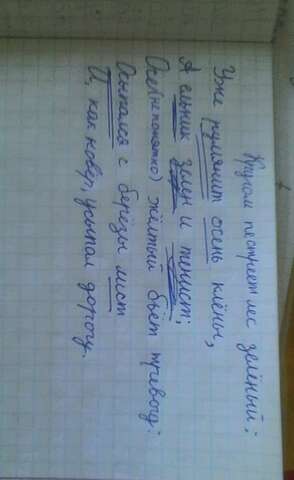 Кругом пестреет лес зелёный:
Уже румянит осень клёны,
А ельник зелен и тенист;
Осе(непонятно) жёлтый бьёт тревогу:
Осыпался с берёзы лист
И, как ковёр, усыпал дорогу.